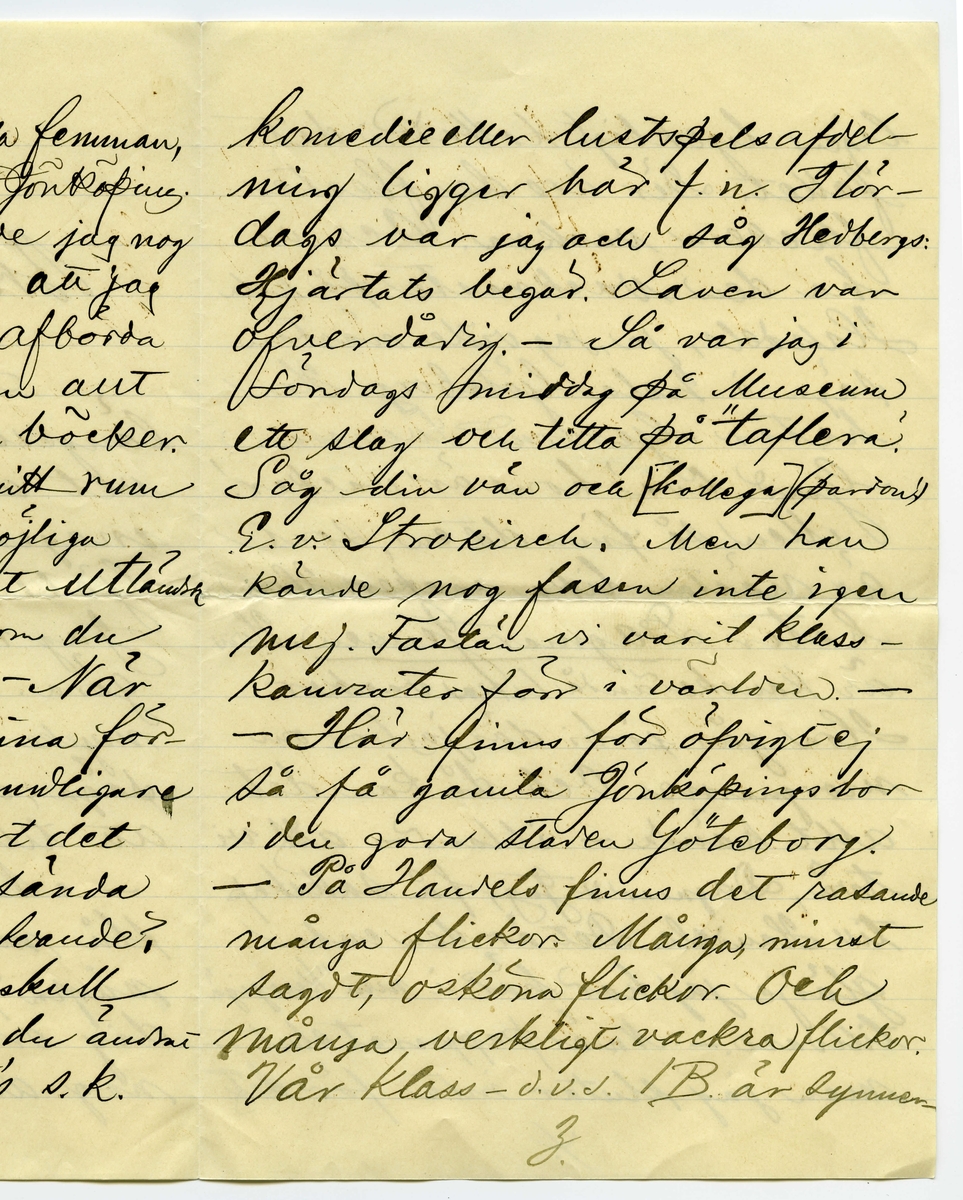 femman,
Jönköping.
jag nog
att jag
afbörda
aut
böcker.
mitt rum
öjliga
t utländsk
du
– När
ina för-
mdligare
rt det
sända
levande?
skull
du ändrat
s. k.
komedie eller lustspelsafdel-
ning ligger här f. n. I lör-
dags var jag och såg Hedbergs:
Hjärtats begär. Laven var
öfverdådig. – Så var jag i
Söndags middag på Museum
ett slag och titta på "taflera".
Såg din vän och [kollega] (pardon!)
E. v. Strokirch. Men han
kände nog fasen inte igen
mej. Fastän vi varit klass-
kamrater förr i världen. –
– Här finns för öfrigt ej
så få gamla Jönköpingsbor
i den goda staden Göteborg.
– På Handels finns det rasande
många flickor. Många, minst
sagdt, osköna flickor. Och
många verkligt vackra flickor.
Vår klass – d.v.s. 1B. är synner-
3.